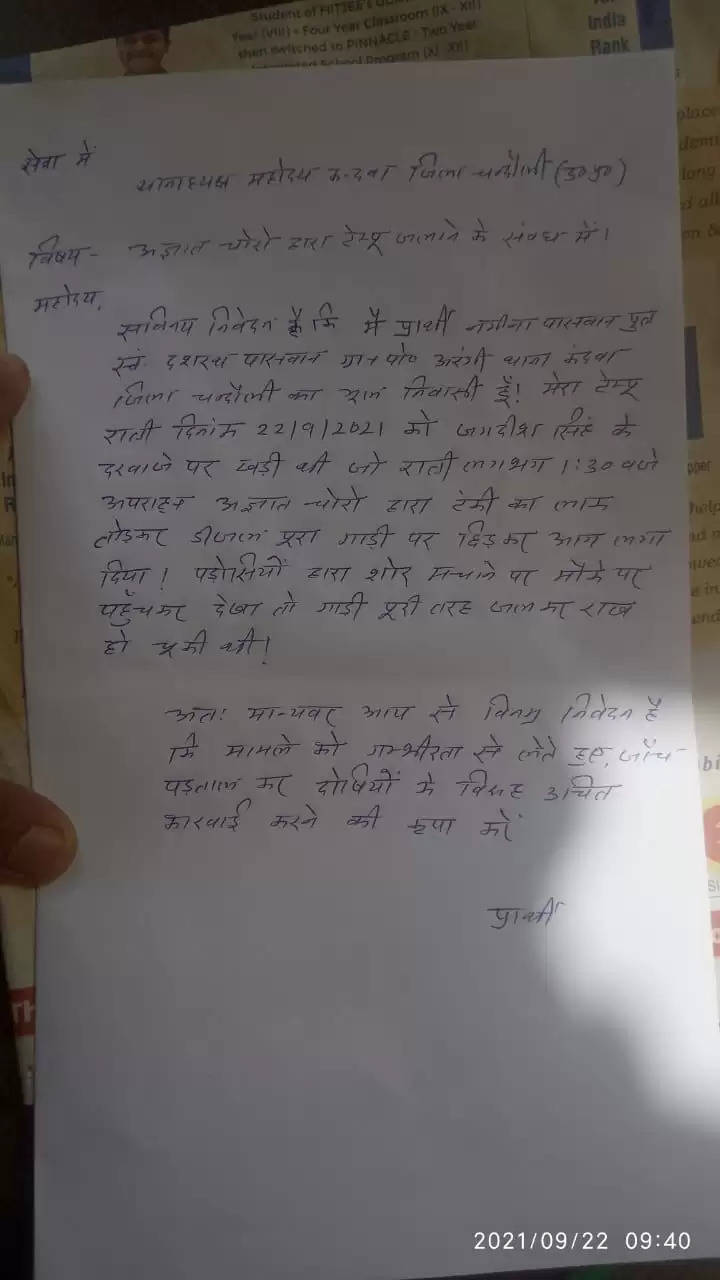 Student of FIITJEE's
Year (VIII) - Four Year Classroom (IX - XII)
then switched to PINNACLE - Two Year
School Program (XI - XII)
India
Rank
सेवा में
थानाध्यक्ष महोदय कन्दवा जिला चन्दौली (उ०प्र०)
विषय- अज्ञात चोरो द्वारा टेम्पू जलाने के संबध में।
महोदय,
सविनय निवेदन है कि मैं प्रार्थी नगीना पासवान पुत्र
स्व. दशरथ पासवान ग्राम पो० अरंगी थाना कंदवा
जिला चन्दौली का मूल निवासी हूँ! मेरा टेम्पू
रात्री दिनांक 22/9/2021 को जगदीश सिंह के
दरवाजे पर खड़ी थी जो रात्री लगभग 1:30 बजे
अपराह्न अज्ञात चोरो द्वारा टंकी का लाक
तोड़कर डीजल पूरा गाड़ी पर छिड़कर आग लगा
दिया! पड़ोसियों द्वारा शोर मचाने पर मौके पर
पहुँचकर देखा तो गाड़ी पूरी तरह जलकर राख
हो चूकी थी!
अतः मान्यवर आप से विनम्र निवेदन है
कि मामले को गम्भीरता से लेते हुए, जाँच
पड़ताल कर दोषियों के विरूद्ध उचित
कारवाई करने की कृपा करें
प्रार्थी
2021/09/22 09:40